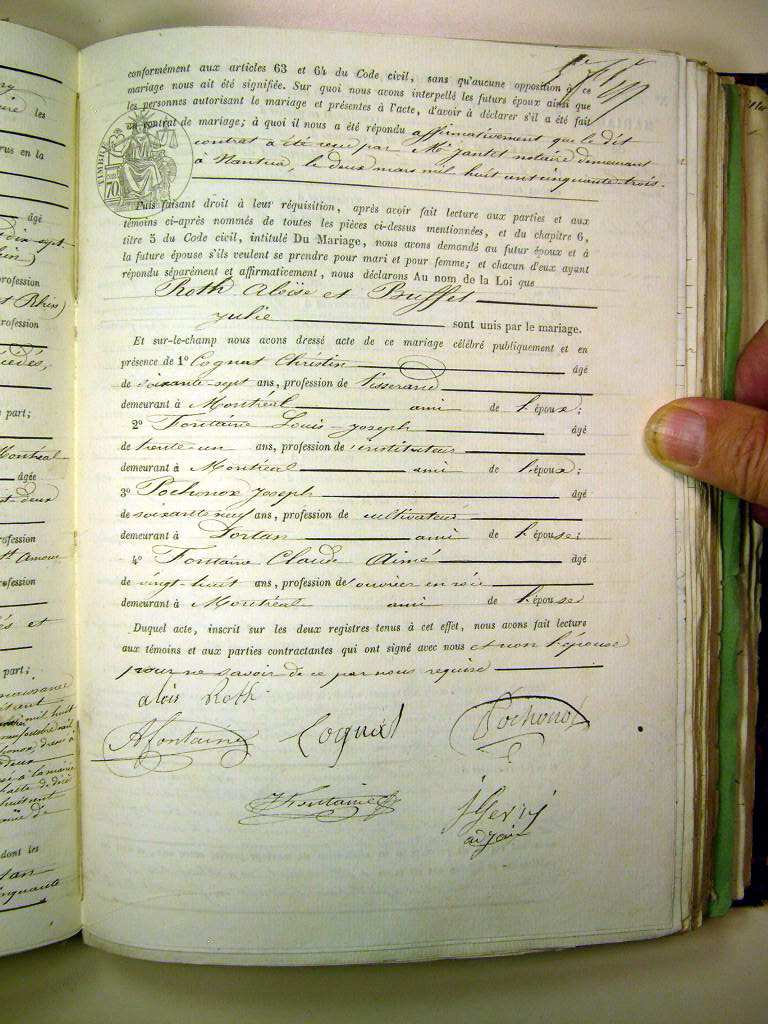 conformément aux articles 63 et 64 du Code civil, sans qu'aucune opposition à ce
mariage nous ait été signifiée. Sur quoi nous avons interpellé les futurs époux ainsi que
les personnes autorisant le mariage et présentes à l'acte, d'avoir à déclarer s'il a été fait
un contrat de mariage; à quoi il nous a été répondu affirmativement que le dit
contrat a été reçu par Me Jantet notaire demeurant
à Nantua, le deux mars mil huit cent cinquante-trois.
TIMBRE
70
Puis faisant droit à leur réquisition, après avoir fait lecture aux parties et aux
témoins ci-après nommés de toutes les pièces ci-dessus mentionnées, et du chapitre 6,
titre 5 du Code civil, intitulé Du Mariage, nous avons demandé au futur époux et à
la future épouse s'ils veulent se prendre pour mari et pour femme; et chacun d'eux ayant
répondu séparément et affirmativement, nous déclarons Au nom de la Loi que
Roth Aloïse et Buffet
Julie sont unis par le mariage.
Et sur-le-champ nous avons dressé acte de ce mariage célébré publiquement et en
présence de 1° Cognat Christin âgé
de soixante-sept ans, profession de tisserand
demeurant à Montréal ami de l'époux;
2° Fontaine Louis-Joseph âgé
de trente-un ans, profession d'instituteur
demeurant à Montréal ami de l'époux;
3° Pochonox Joseph âgé
de soixante neuf ans, profession de cultivateur
demeurant à Dortan ami de l'épouse;
4° Fontaine Claude Aimé âgé
de vingt-huit ans, profession de ouvrier en soie
demeurant à Montréal ami de l'épouse
Duquel acte, inscrit sur les deux registres tenus à cet effet, nous avons fait lecture
aux témoins et aux parties contractantes qui ont signé avec nous et non l'épouse
pour ne savoir de ce par nous requise
alois Roth
A Fontaine Cognat Pochonox
Fontaine J Gerry
adjoint